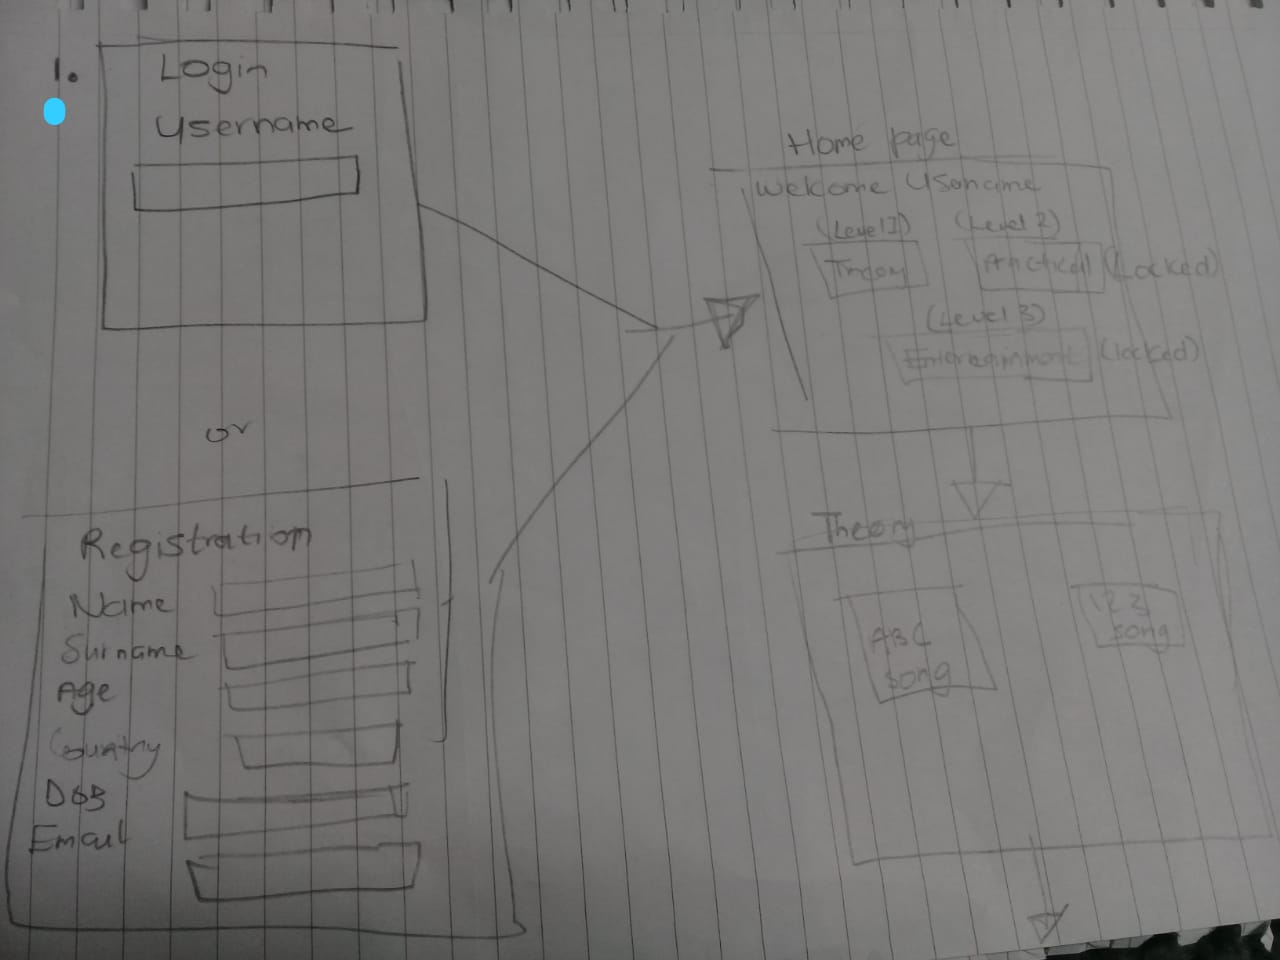 1.
Login
Username
or
Registration
Name
Surname
Age
Country
DOB
Email
Home page
Welcome Usoname
(Level 1) (Level 2)
Theory Practical (Locked)
(Level 3)
Entertainment (locked)
Theory
ABC
song
123
song